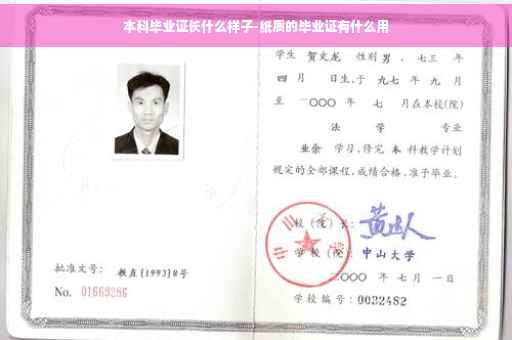 本科毕业证长什么样子-纸质的毕业证有什么用
学生 贺文龙 性别 男 、七三 年
四 月 日生,于 九七 年 九 月
至 二〇〇〇 年 七 月在本校(院)
法 学 专业
业余 学习,修完 本 科教学计划
规定的全部课程,成绩合格,准予毕业。
校(院)长:
学 校(院): 中山大学
二〇〇〇 年 七 月 一 日
学校编号: 0032482
批准文号: 教直(1993)8号
No. 01669286